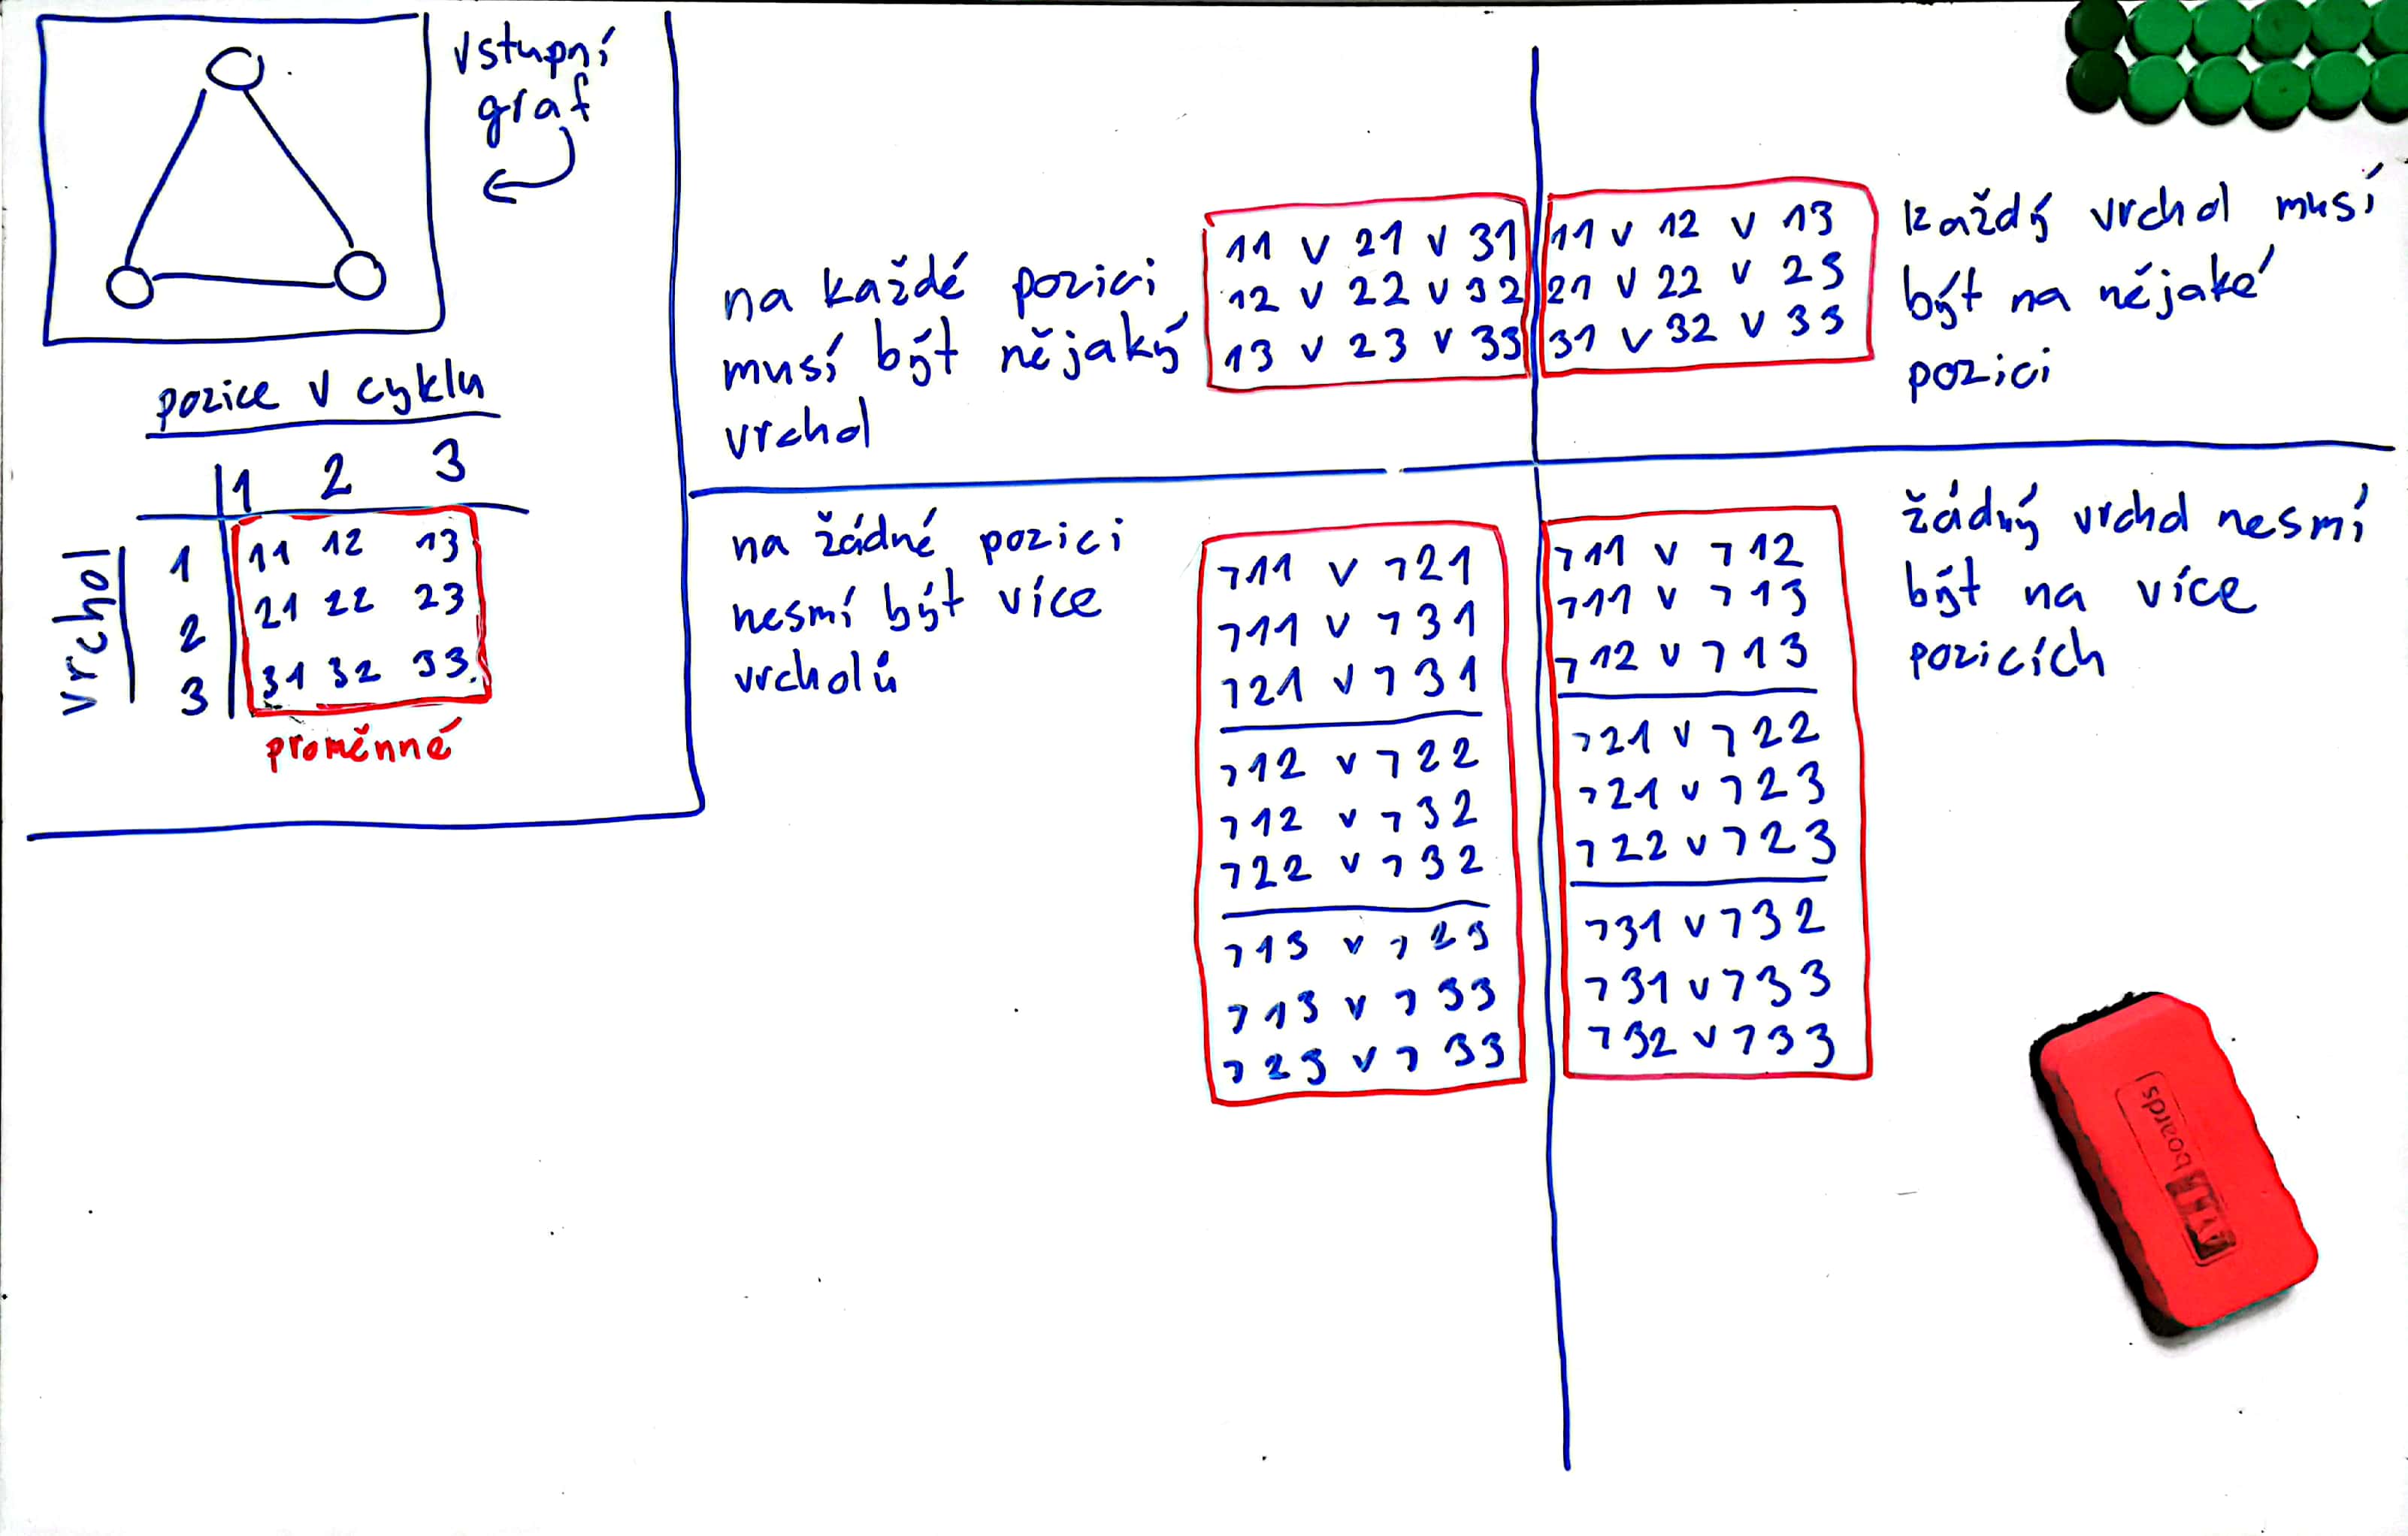 vstupní
graf
pozice v cyklu
1 2 3
vrchol
1 11 12 13
2 21 22 23
3 31 32 33
proměnné
na každé pozici
musí být nějaký
vrchol
11 v 21 v 31
12 v 22 v 32
13 v 23 v 33
11 v 12 v 13
21 v 22 v 23
31 v 32 v 33
každý vrchol musí
být na nějaké
pozici
na žádné pozici
nesmí být více
vrcholů
¬11 v ¬21
¬11 v ¬31
¬21 v ¬31
¬12 v ¬22
¬12 v ¬32
¬22 v ¬32
¬13 v ¬23
¬13 v ¬33
¬23 v ¬33
¬11 v ¬12
¬11 v ¬13
¬12 v ¬13
¬21 v ¬22
¬21 v ¬23
¬22 v ¬23
¬31 v ¬32
¬31 v ¬33
¬32 v ¬33
žádný vrchol nesmí
být na více
pozicích
boards